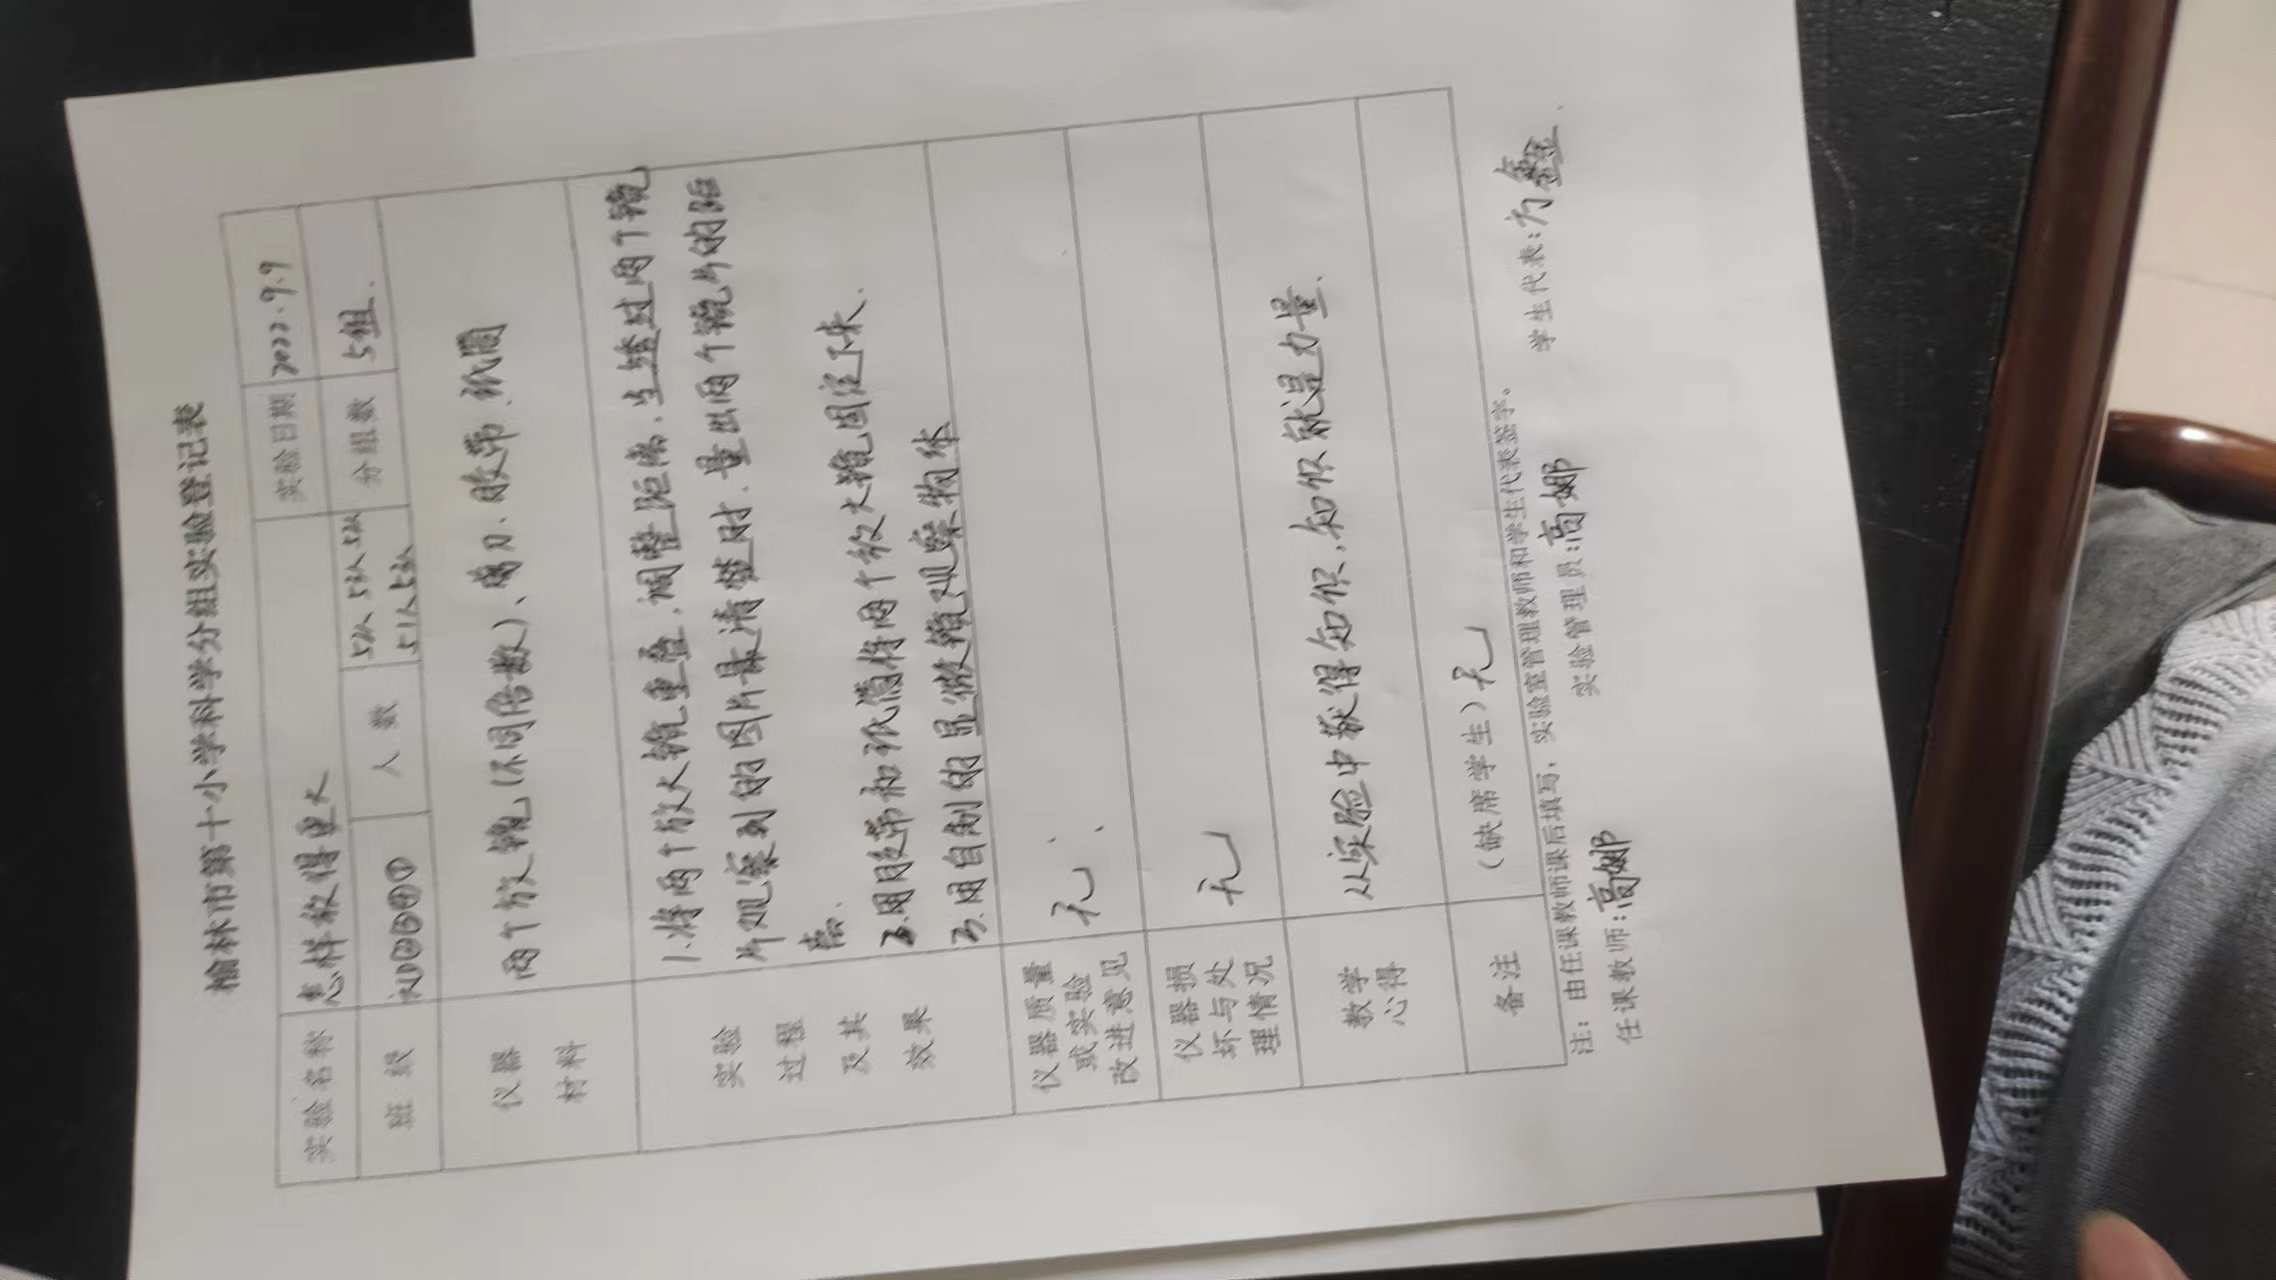 榆林市第十小学科学分组实验登记表
实验名称 怎样放得更大 实验日期 2022.9.9
班级 人数 51人 分组数 5组.
51人
仪器材料 两个放大镜(不同倍数)、胶带、纸筒
实验过程及其效果
1.将两个放大镜重叠,调整距离,当透过两个镜
片观察到的图片最清楚时,量出两个镜片的距
离.
2.用胶带和纸筒将两个放大镜固定下来.
3.用自制的显微镜观察物体
仪器质量或实验改进意见 无.
仪器损坏与处理情况 无
教学心得 从实验中获得知识,知识就是力量.
备注 (缺席学生)无
注:由任课教师课后填写,实验室管理教师和学生代表签字。
任课教师:高娜 实验管理员:高娜 学生代表: